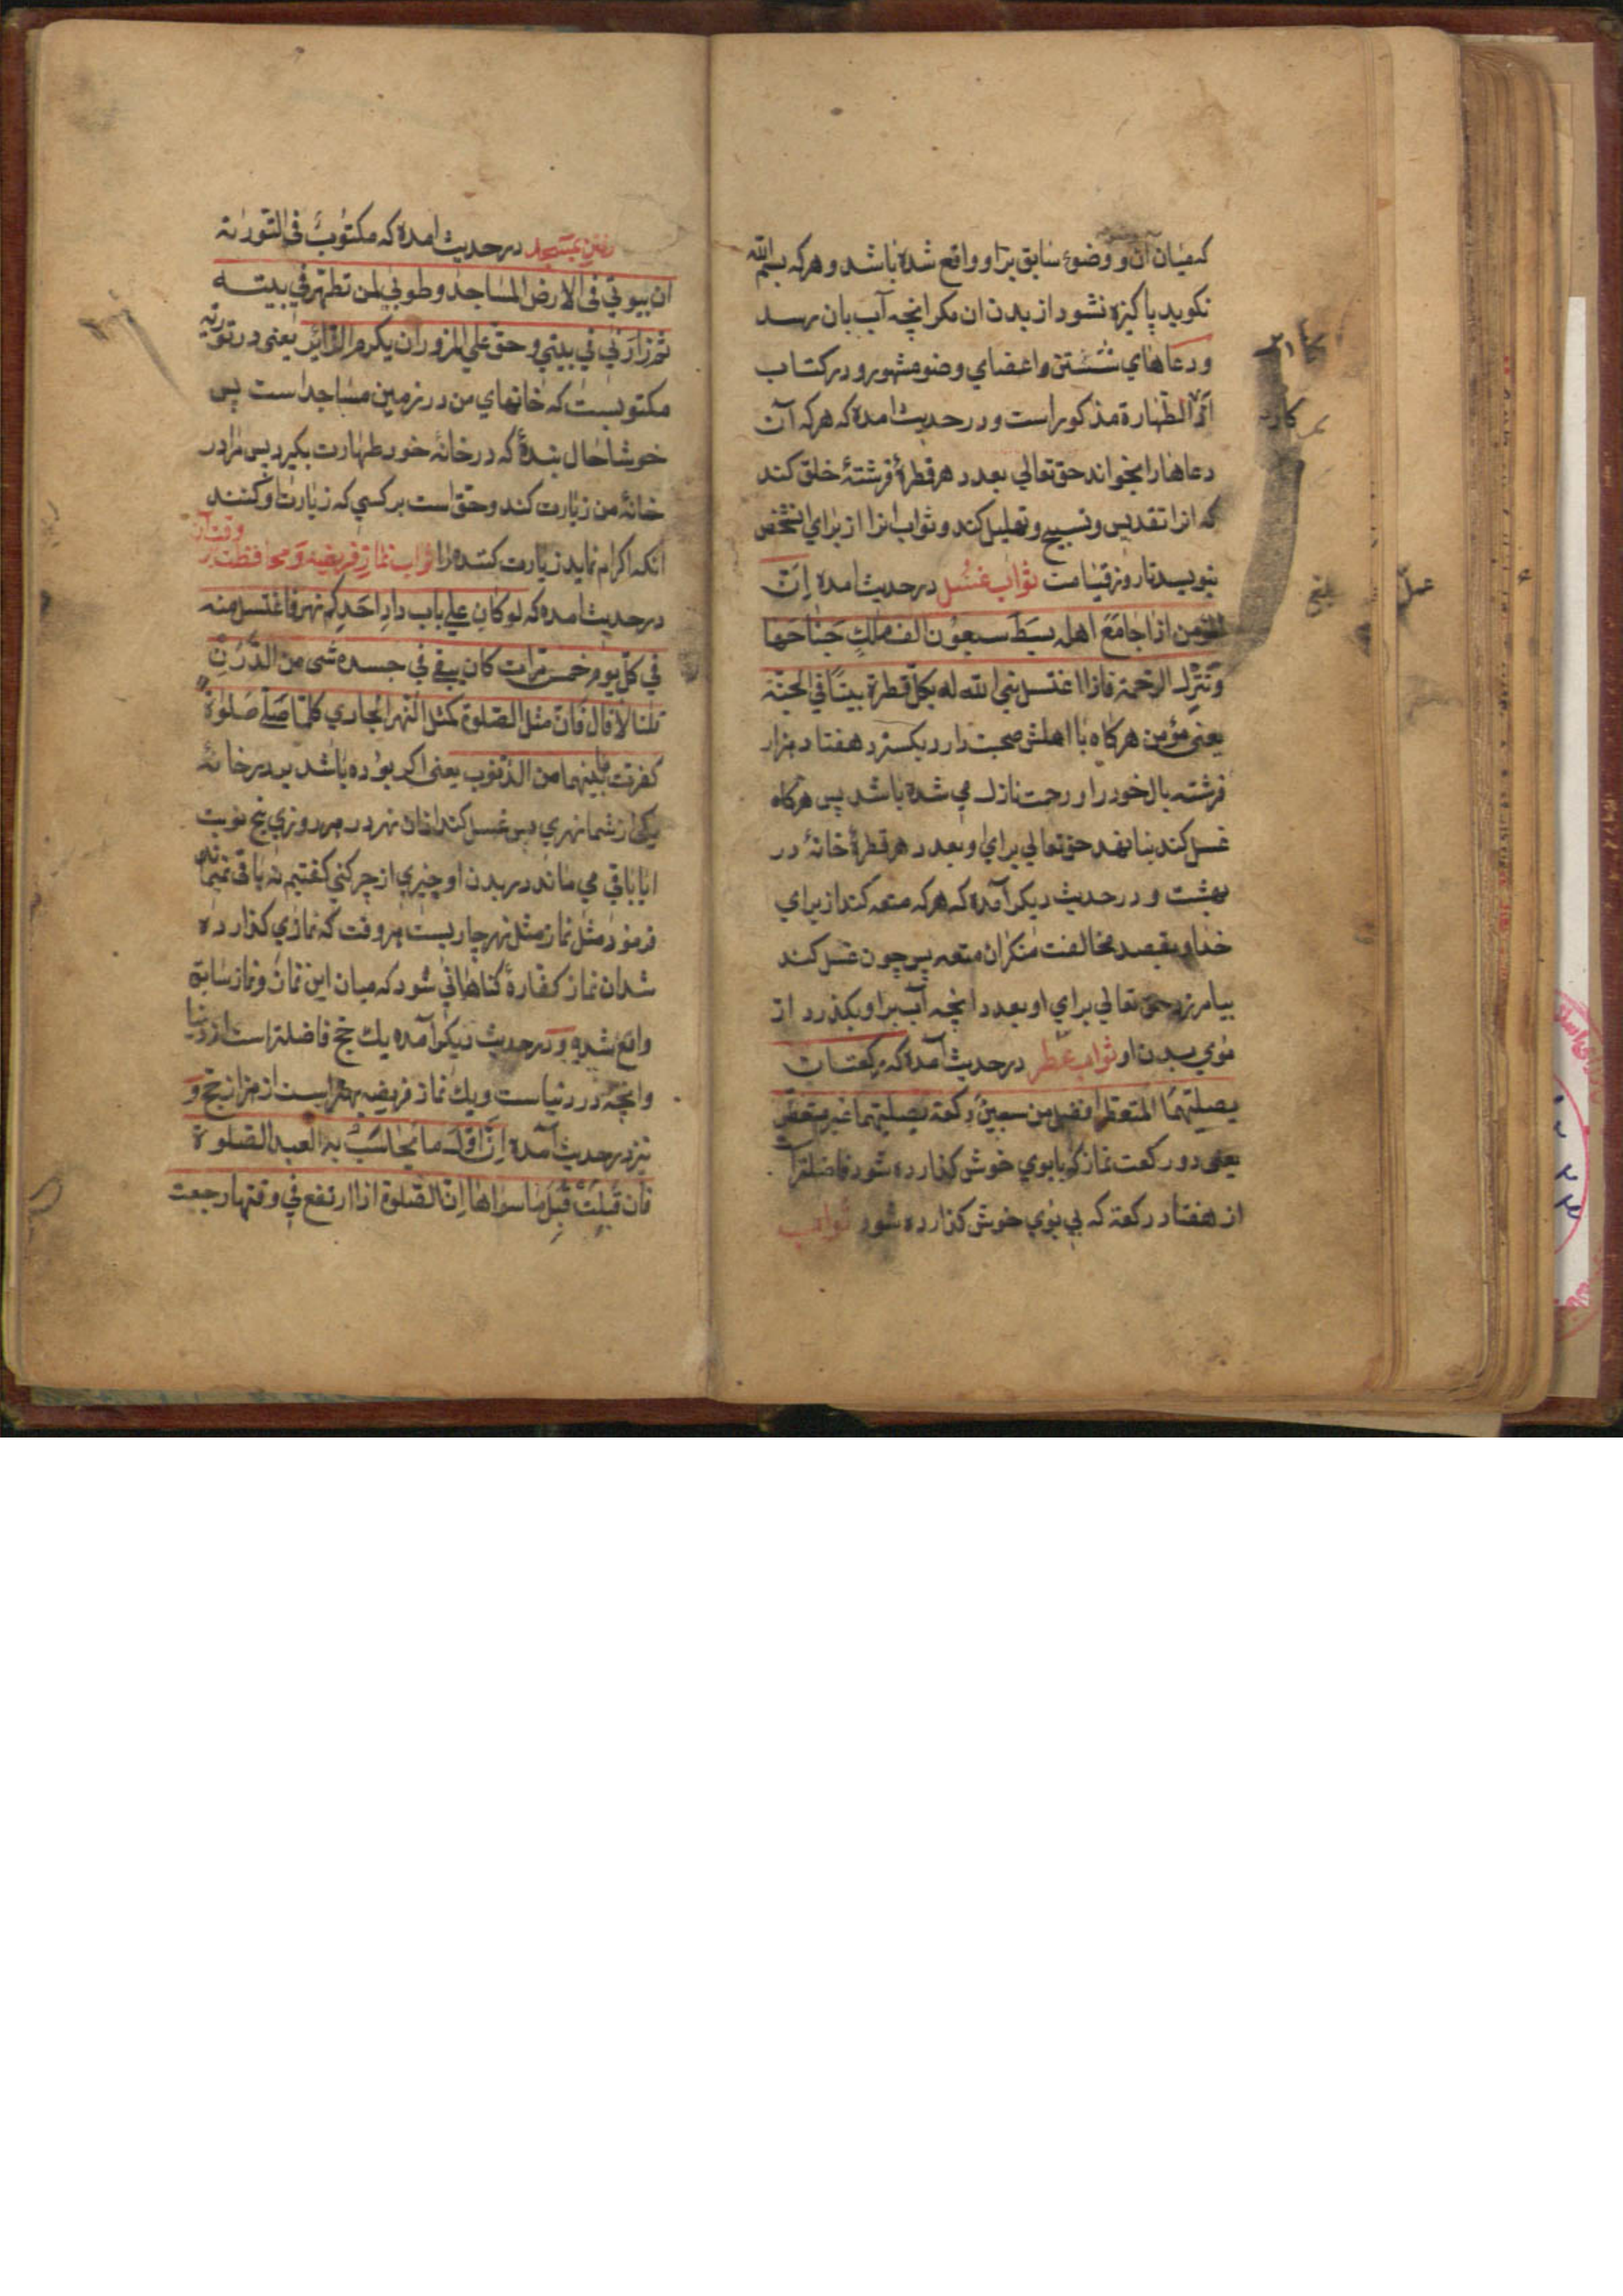 که میان آن و وضوء سابق براو واقع شده باشد و هرکه بسم الله
نکوید پاکیزه نشود از بدن ان مکر انچه آب بان رسد
و دعاهاي شستن اعضاي وضو مشهور و در کتاب
الطهارة مذکور است و در حدیث امده که هرکه آن
دعاها را بخواند حق تعالي بعدد هر قطرۀ فرشتۀ خلق کند
که انرا تقدیس و تسبیح و تهلیل کند و ثواب انرا از براي انشخص
بنویسد تا روز قیامت ثواب غسل در حدیث امده اِنّ
المؤمن اذا جامَعَ اهله بسَطَ سبعوُن الف ملكٍ جَناحَها
وَ تَنزل الرحمة فاذا اغتسل بنی الله له بکلّ قطرة بیتًا في الجنّة
یعنی مؤمن هرکاه با اهلش صحبت دارد بکسترد هفتاد هزار
فرشته بال خود را و رحمت نازل مي شده باشد پس هرکاه
غسل کند بنا نهد حق تعالي براي او بعدد هر قطرۀ خانۀ در
بهشت و در حدیث دیکر آمده که هرکه متعه کند از براي
خدا و بقصد مخالفت منکران متعه پس چون غسل کند
بیامرزد حق تعالي براي او بعدد انچه آب براو بکذرد از
موي بدن او ثواب عطر در حدیث آمده که رکعتان
یصلیّهمَا المتعطر افضل من سبعین رکعة یصلیهما غیر متعطر
یعنی دو رکعت نماز که با بوي خوش کذارده شود فاضلترا ست
از هفتاد رکعة که بي بوي خوش کذارده شود ثواب
رفتن بمسجد در حدیث امده که مکتوبٌ فی التوراة
ان بیوتي فی الارض المساجد وطوبي لمن تطهّر في بیته
ثمّ زارني في بیتي و حقّ علي المزور ان یکرم الزّائر یعنی در توریة
مکتوبست که خانهاي من در زمین مساجد است پس
خوشا حال بندۀ که در خانۀ خود طهارت بکیرد پس مرا در
خانۀ من زیارت کند و حق است بر کسي که زیارت او کنند
انکه اکرام نماید زیارت کننده را ثواب نماز فریضه و محافظت بر وقت آن
در حدیث امده که لو کان علي باب دارِ احَدِکم نهر فاغتسل منه
في کلّ یوم خمس مرات کان یبقے في جسده شی من الدَّرَنِ
قلنا لا قال فانّ مثل الصلوة کمثل النّهر الجاري کلّما صَلّے صَلوةً
کفرت ما بینهما من الذنوب یعنی اکر بوده باشد بر در خانۀ
یکی از شما نهري پس غسل کند ازان نهر در هر روزي پنج نوبت
ایا باقي مي ماند در بدن او چیزي از چرکنی کفتیم نه باقی نمیماند
فرمود مثل نماز مثل نهر جاریست هروقت که نمازي کذارده
شد ان نماز کفارۀ کناهاني شود که میان این نماز و نماز سابق
واقع شده و در حدیث دیکر آمده یك حج فاضلتر است از دنیا
وانچه در دنیاست و یك نماز فریضه بهتر است از هزار حج و
نیز در حدیث آمده اِنّ اوّلَ ما یُحاسَبُ به العبد الصلوة
فان قُبِلَتْ قُبِلَ ما سواها اِنّ الصلوة اذا ارتفع في وقتها رجعت